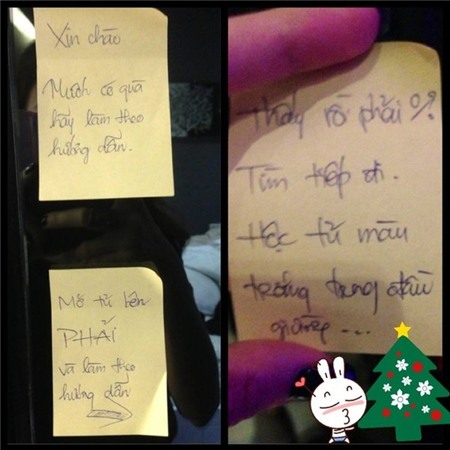 Xin chào
Muốn có quà
hãy làm theo
hướng dẫn.
Mở tủ bên
PHẢI
và làm theo
hướng dẫn
Thấy rồi phải %?
Tìm tiếp đi.
Hộc tủ màu
trắng trong đầu
giường...